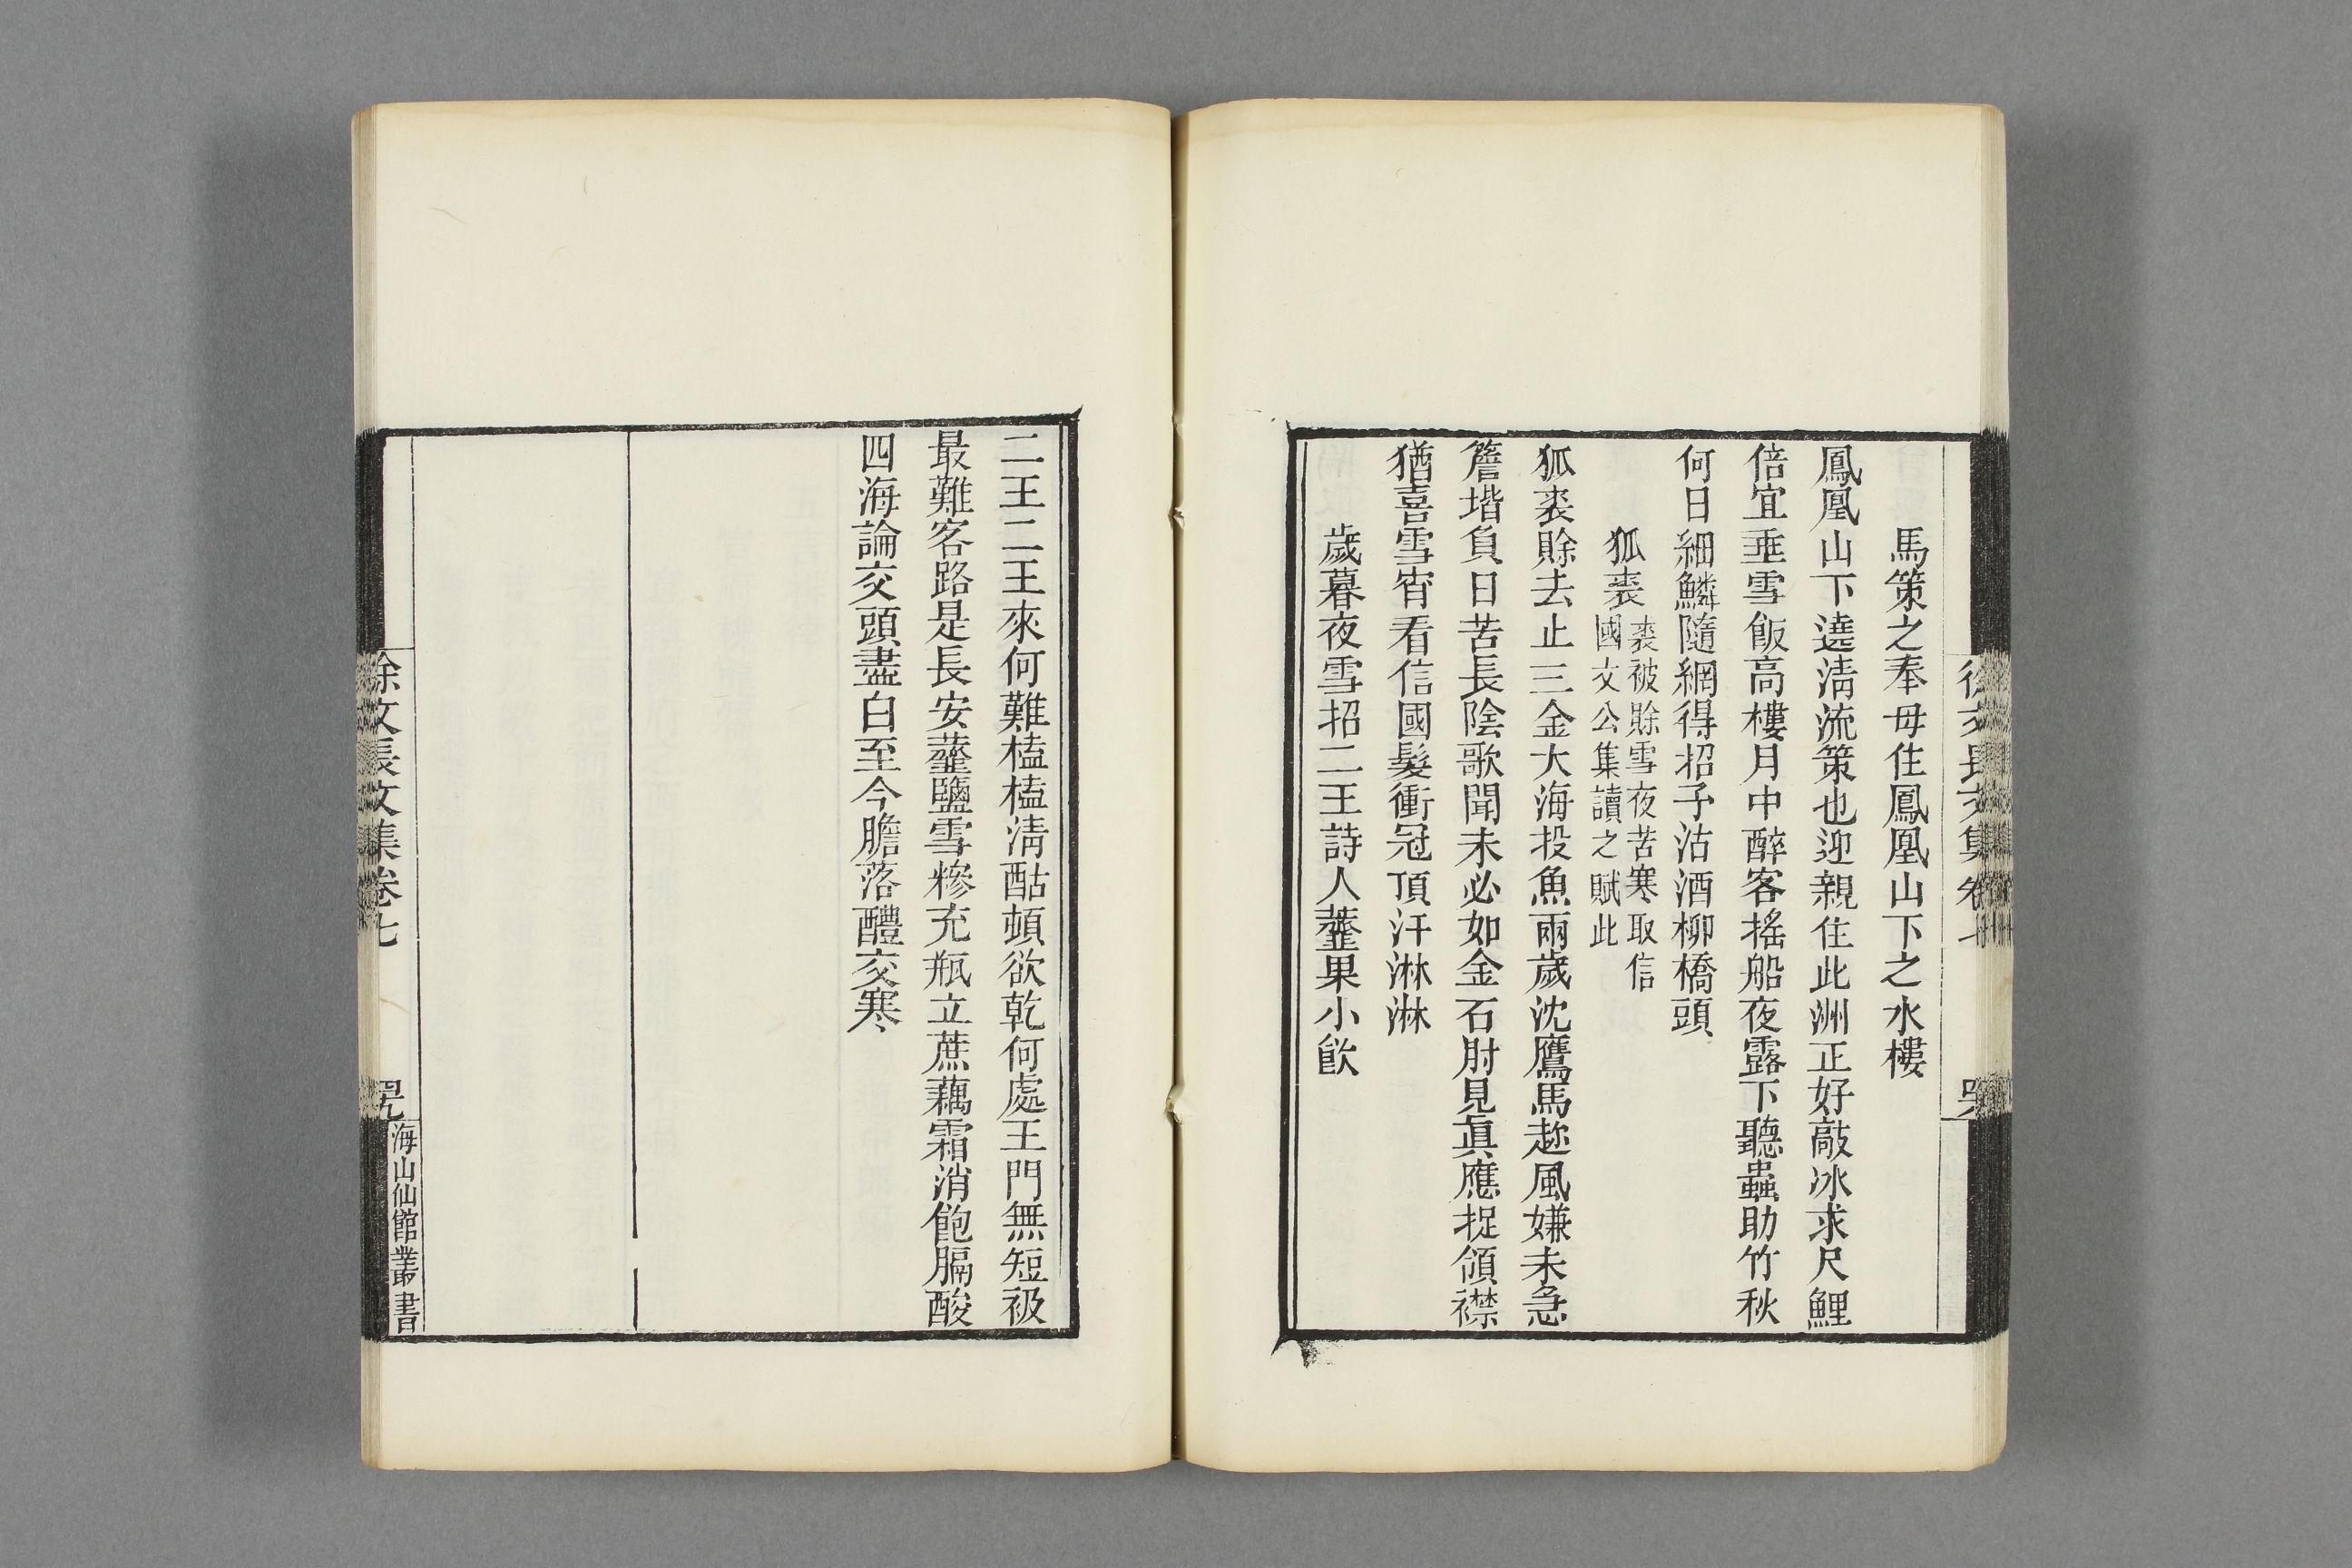 馬策之奉母住鳳凰山下之水樓
鳳凰山下遶淸流策也迎親住此洲正好敲冰求尺鯉
倍宜垂雪飯高樓月中醉客搖船夜露下聽蟲助竹秋
何日細鱗隨網得招子沽酒柳橋頭
狐裘裘被賒雪夜苦寒取信
國文公集讀之賦此
狐裘賒去止三金大海投魚兩歲沈鷹馬趂風嫌未急
簷堦負日苦長陰歌聞未必如金石肘見眞應捉領襟
猶喜雪宵看信國髮衝冠頂汗淋淋
歲暮夜雪招二王詩人虀果小飮
二王二王來何難榼榼淸酤頓欲乾何處王門無短衱
最難客路是長安虀鹽雪糝充瓶立蔗藕霜消飽膈酸
四海論交頭盡白至今膽落醴交寒
徐文長文集卷七
海山仙館叢書